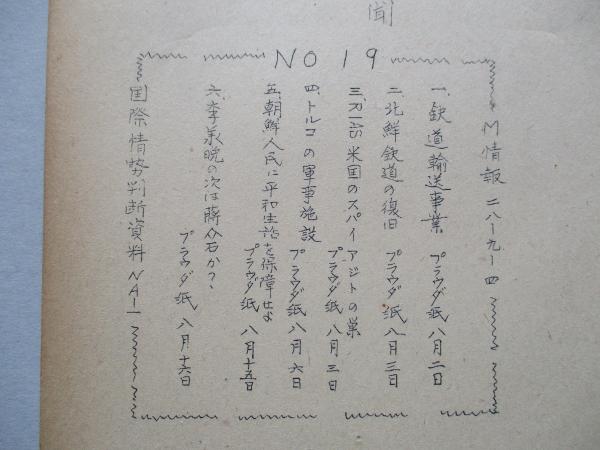 聞
NO 19
M情報 二八-九-四
一、鉄道輸送事業 プラウダ紙 八月二日
二、北鮮鉄道の復旧 プラウダ紙 八月三日
三、RIAS 米国のスパイ アジトの巣 プラウダ紙 八月三日
四、トルコの軍事施設 プラウダ紙 八月六日
五、朝鮮人民に平和生活を保障せよ プラウダ紙 八月十五日
六、李承晩の次は蔣介石か? プラウダ紙 八月十六日
国際情勢判断資料 NA-1